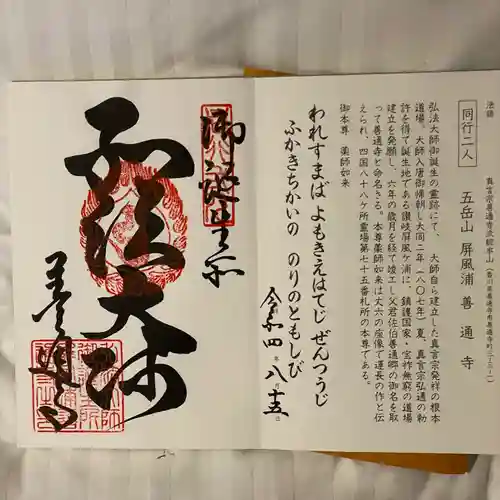 法語
真言宗善通寺派総本山
五岳山 屏風浦 善通寺
同行二人
弘法大師御誕生の霊跡にて、大師自ら建立した真言宗発祥の根本
道場。大師入唐御帰朝し大同二年(八〇七年)夏、真言宗弘通の勅
許を得て誕生地である讃岐屏風ヶ浦に、鎮護国家・宝祚無窮の道場
建立を発願し、六年の歳月を経て竣工、父君佐伯善通卿の御名を取
って善通寺と命名さる。本尊薬師如来は丈六の座像で運長の作と伝
えられ、四国八十八ヶ所霊場第七十五番札所の本尊である。
御本尊 薬師如来
われすまば よもきえはてじ ぜんつうじ
ふかきちかいの のりのともしび
令和四年八月十五日
御誕生所
弘法大師
善通寺